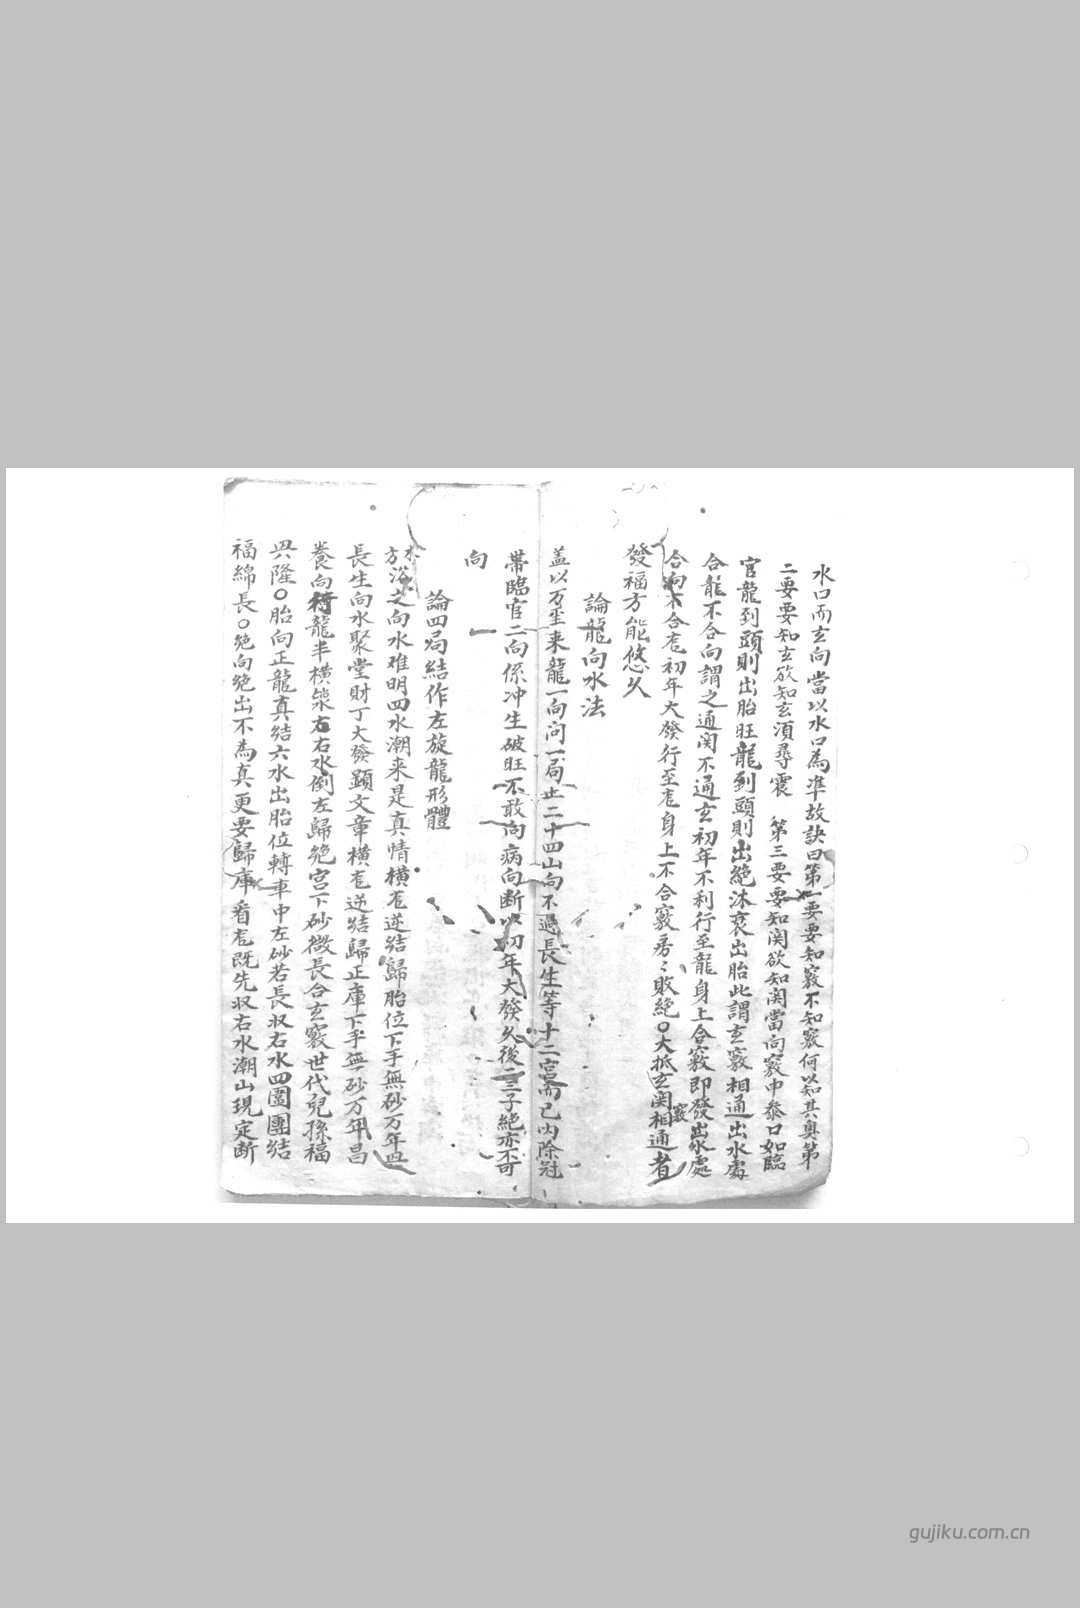 水口而玄向當以水口為準故訣曰第一要要知竅不知竅何以知其奥第
二要要知玄欲知玄須尋震 第三要要知関欲知関當向竅中叅口如臨
官龍到頭則出胎旺龍到頭則出絶沐衰出胎此謂玄竅相通出水處
合龍不合向謂之通関不通玄初年不利行至龍身上合竅即發出水處
合向不合龙初年大發行至龙身上不合竅房〻敗絶〇大抵玄関竅相通者
發福方能悠久
論龍向水法
盖以万里来龍一向问一局止二十四山向不過長生等十二宮而已内除冠
帶臨官二向係冲生破旺不敢向病向断以初年大發久後二三子絶亦不可
向
論四局結作左旋龍形體
方浴之向水难明四水潮来是真情横龙逆结歸胎位下手無砂万年興
水
長生向水聚堂財丁大發顕文章横龙逆结歸正庫下手無砂万年昌
養向龍半横裝右右水倒左歸绝宫下砂微長合玄竅世代兒孫福
興隆〇胎向正龍真结六水出胎位轉車中左砂若長收右水四圍團结
福綿長〇绝向绝出不為真更要歸庫看龙既先収右水潮山現定断
gujiku.com.cn